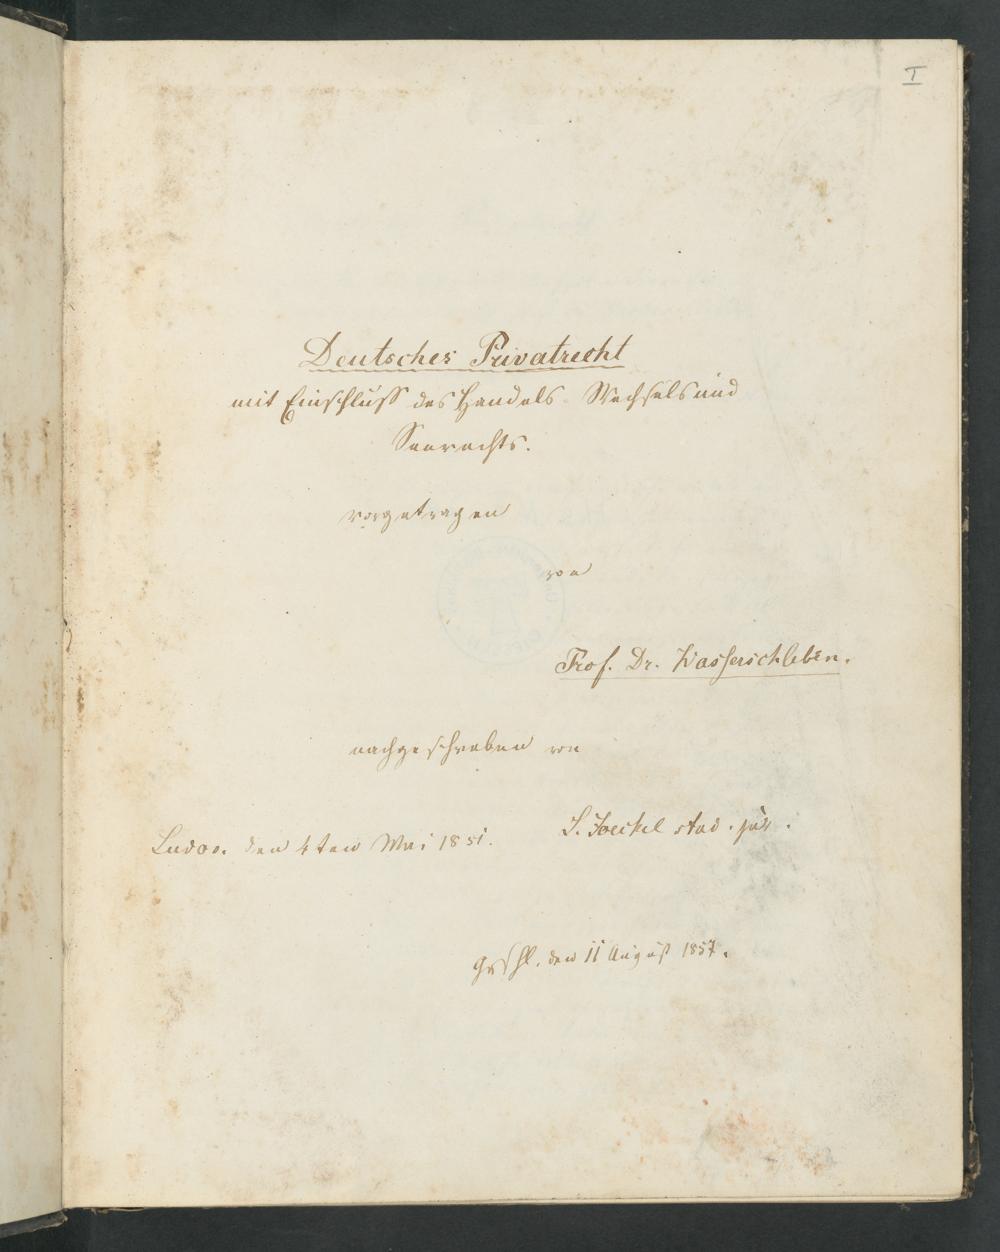 I
Deutsches Privatrecht
mit Einschluss des Handels- Wechsels und
Seerechts.
vorgetragen
von
Prof. Dr. Wasserschleben.
nachgeschrieben von
S. Joeckel stud. jur.
den 4ten Mai 1851.
den 11 August 1857.